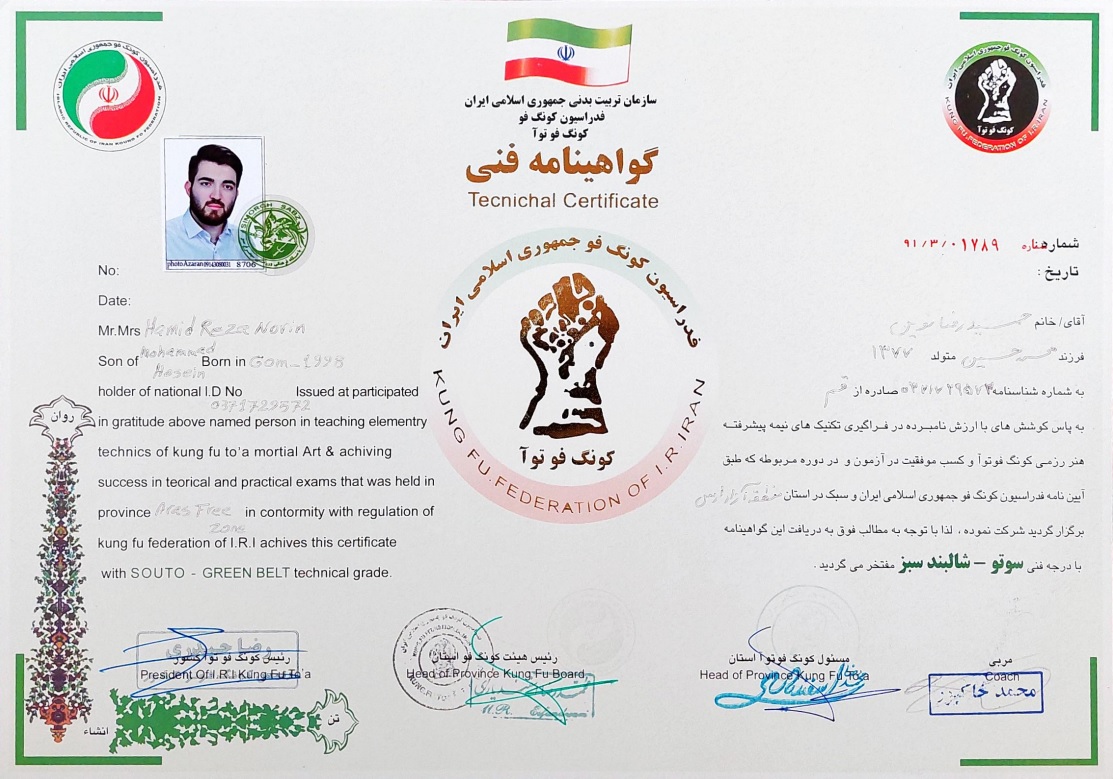 فدراسیون کونگ فو جمهوری اسلامی ایران
ISLAMIC REPUBLIC OF IRAN KOUNG FU FEDERATION
سازمان تربیت بدنی جمهوری اسلامی ایران
فدراسیون کونگ فو
کونگ فو توآ
گواهینامه فنی
Tecnichal Certificate
فدراسیون کونگ فو جمهوری اسلامی ایران
کونگ فو توآ
KUNG FU.FEDERATION OF I.R.IRAN
SIMORGH SABA
photo Azaran
8706
No:
Date:
Mr.Mrs Hamid Reza Novin
Son of Mohammad Hosein Born in Gom_1998
holder of national I.D No 0371729572 Issued at participated
in gratitude above named person in teaching elementry
technics of kung fu to'a mortial Art & achiving
success in teorical and practical exams that was held in
province Aras Free Zone in conformity with regulation of
kung fu federation of I.R.I achives this certificate
with SOUTO - GREEN BELT technical grade.
فدراسیون کونگ فو جمهوری اسلامی ایران
کونگ فو توآ
KUNG FU.FEDERATION OF I.R.IRAN
شماره ۹۱/۳/۰۱۷۸۹
تاریخ :
آقای/خانم حمیدرضا نوین
فرزند محمد حسین متولد ۱۳۷۷
به شماره شناسنامه صادره از قم
به پاس کوشش های با ارزش نامبرده در فراگیری تکنیک های نیمه پیشرفته
هنر رزمی کونگ فوتوآ و کسب موفقیت در آزمون و در دوره مربوطه که طبق
آیین نامه فدراسیون کونگ فو جمهوری اسلامی ایران و سبک در استان منطقه آزاد ارس
برگزار گردید شرکت نموده ، لذا با توجه به مطالب فوق به دریافت این گواهینامه
با درجه فنی سوتو – شالبند سبز مفتخر می گردید .
روان
تن
انشاء
رئیس کونگ فو توآ کشور
President Of I.R.I Kung Fu To'a
رئیس هیئت کونگ فو استان
Head of Province Kung Fu Board
مسئول کونگ فو توآ استان
Head of Province Kung Fu To'a
مربی
Coach